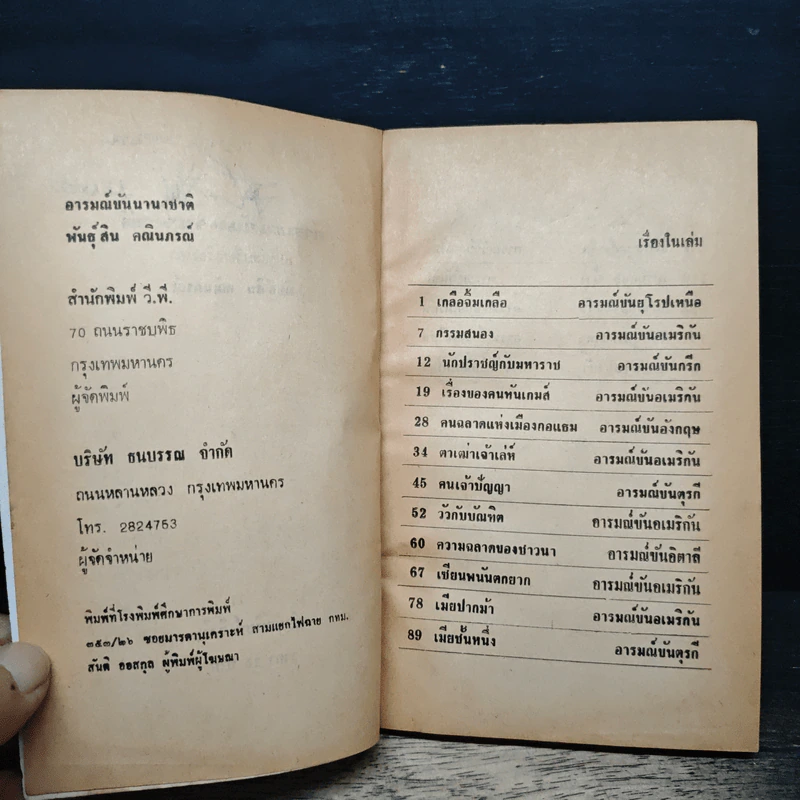 อารมณ์ขันนานาชาติ
พันธุ์สิน คณินภรณ์
สำนักพิมพ์ วี.พี.
70 ถนนราชบพิธ
กรุงเทพมหานคร
ผู้จัดพิมพ์
บริษัท ธนบรรณ จำกัด
ถนนหลานหลวง กรุงเทพมหานคร
โทร. 2824753
ผู้จัดจำหน่าย
พิมพ์ที่โรงพิมพ์ศึกษาการพิมพ์
๓๕๓/๒๖ ซอยมารดานุเคราะห์ สามแยกไฟฉาย กทม.
สันติ ออสกุล ผู้พิมพ์ผู้โฆษณา
เรื่องในเล่ม
1 เกลือจิ้มเกลือ อารมณ์ขันยุโรปเหนือ
7 กรรมสนอง อารมณ์ขันอเมริกัน
12 นักปราชญ์กับมหาราช อารมณ์ขันกรีก
19 เรื่องของคนทันเกมส์ อารมณ์ขันอเมริกัน
28 คนฉลาดแห่งเมืองกอแธม อารมณ์ขันอังกฤษ
34 ตาเฒ่าเจ้าเล่ห์ อารมณ์ขันอเมริกัน
45 คนเจ้าปัญญา อารมณ์ขันตุรกี
52 วัวกับบัณฑิต อารมณ์ขันอเมริกัน
60 ความฉลาดของชาวนา อารมณ์ขันอิตาลี
67 เซียนพนันตกยาก อารมณ์ขันอเมริกัน
78 เมียปากม้า อารมณ์ขันอเมริกัน
89 เมียชั้นหนึ่ง อารมณ์ขันตุรกี